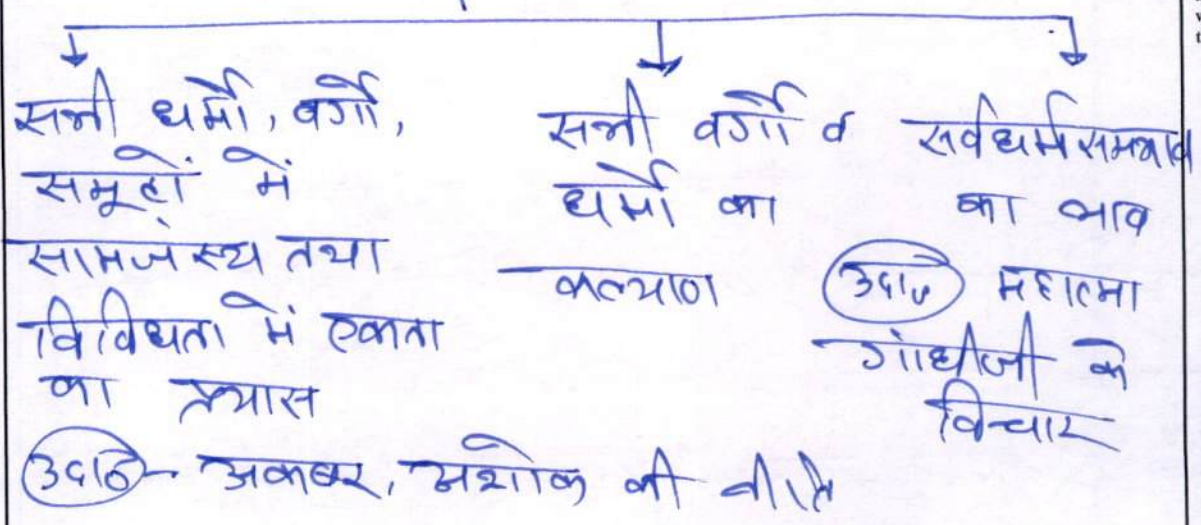 सभी धर्मों, वर्गों,
समूहों में
सामंजस्य तथा
विविधता में एकता
का प्रयास
उदा०- अकबर, अशोक की नीति
सभी वर्गों व
धर्मों का
कल्याण
सर्वधर्मसमभाव
का भाव
उदा० महात्मा
गांधीजी के
विचार